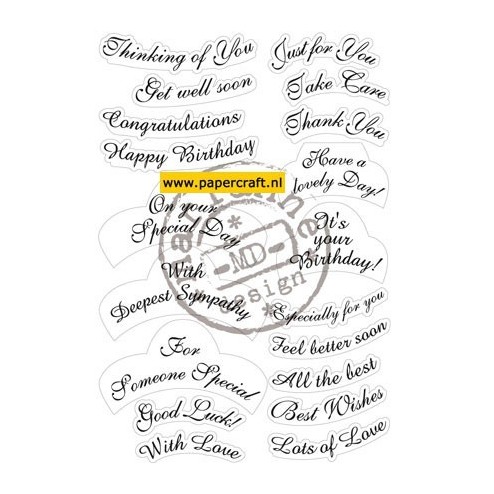 Thinking of You
Get well soon
Congratulations
Happy Birthday
www.papercraft.nl
On your
Special Day
With
Deepest Sympathy
For
Someone Special
Good Luck!
With Love
Just for You
Take Care
Thank You
Have a
lovely Day!
It's
your
Birthday!
Especially for you
Feel better soon
All the best
Best Wishes
Lots of Love
MD
Design